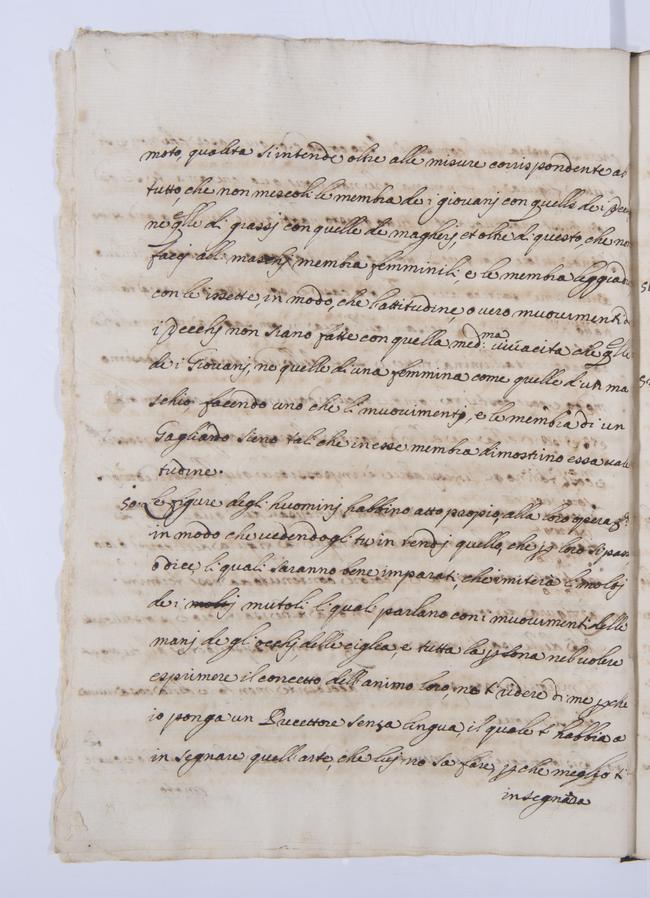 moto, qualità s'intende oltre alle misure corrispondente al
tutto, che non mescoli le membra de i giovanj con quelle de i vec
ne q.lle di grassj con quelle de magherj, et oltre di questo, che nõ
faccj alli maschj membra femminili, e le membra leggiadr
con le inette, in modo, che l'attitudine, o vero muovimenti d
i Vecchj non siano fatte con quella med.ma vivacita che q.lle
de i Giovanj, ne quelle di una femmina come quelle d'un ma
schio, facendo uno che li muovimenti, e le membra di un
Gagliardo sieno tali che in esse membra dimostrino essa vale
tudine.
50 Le figure degli huominj habbino atto propio, alla loro opera.ne
in modo che vedendogli tu intendj quello, che p loro si pen
o dice, li quali saranno bene imparati, chi imitera li motj
de i mutoli li quali parlano con i muovimenti delle
manj de gli occhj, delle ciglia, e tutta la psona nel volere
esprimere il concetto dell'animo loro, nõ t'ridere di me, pche
io ponga un Precettore senza lingua, il quale t'habbia a
insegnare quell'arte, che luj nõ sa fare, pche meglio t'
insegnara